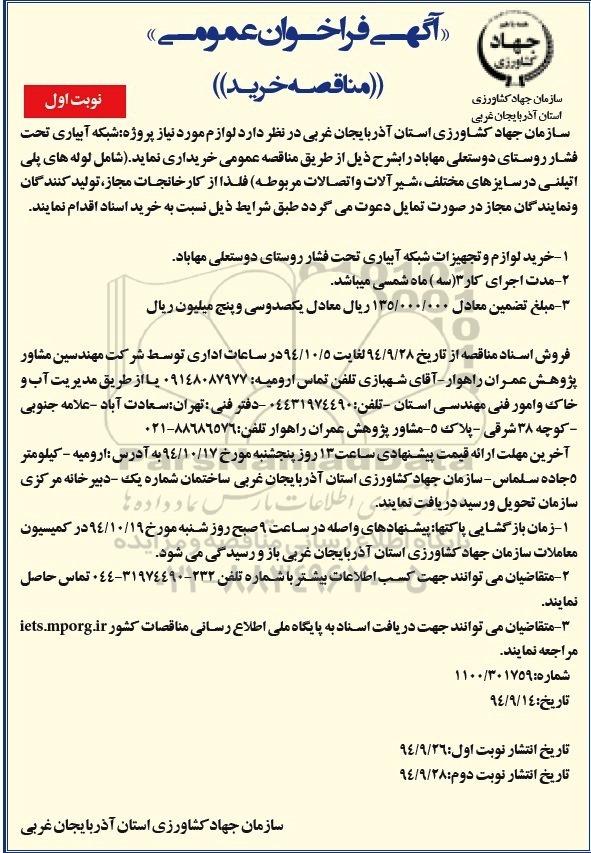 «آگهـی فراخـوان عمومـی»
((مناقصه خریـد))
همه با هم
جهـاد
کشاورزی
سازمان جهاد کشاورزی
استان آذربایجان غربی
نوبت اول
سـازمان جهاد کشـاورزی اسـتان آذربایجان غربی در نظر دارد لوازم مورد نیاز پروژه:شبکه آبیاری تحت
فشار روسـتای دوستعلی مهاباد رابشرح ذیل از طریق مناقصه عمومی خریداری نماید.(شامل لوله های پلی
اتیلنـی درسـایزهای مختلف ،شیرآلات واتصالات مربوطـه) فلـذا از کارخانجـات مجاز،تولیدکنندگان
ونمایندگان مجاز در صورت تمایل دعوت می گردد طبق شرایط ذیل نسبت به خرید اسناد اقدام نمایند.
۱-خرید لوازم و تجهیزات شبکه آبیاری تحت فشار روستای دوستعلی مهاباد.
۲-مدت اجرای کار۳(سه ) ماه شمسی میباشد.
۳-مبلغ تضمین معادل ۱۳۵/۰۰۰/۰۰۰ ریال معادل یکصدوسی و پنج میلیون ریال
فروش اسـناد مناقصه از تاریخ ۹۴/۹/۲۸ لغایت ۹۴/۱۰/۵ در سـاعات اداری توسـط شرکت مهندسین مشاور
پژوهـش عمـران راهـوار-آقای شـهبازی تلفن تماس ارومیـه: ۰۹۱۴۸۰۸۷۹۷۷ یـا از طریق مدیریت آب و
خاک وامور فنی مهندسـی اسـتان -تلفن:۰۴۴۳۱۹۷۴۴۹۰ -دفتر فنی :تهران:سـعادت آباد -علامه جنوبی
-کوچه ۳۸ شرقی -پلاک ۵-مشاور پژوهش عمران راهوار تلفن:۸۸۶۸۶۵۷۶-۰۲۱
آخرین مهلت ارائه قیمت پیشـنهادی سـاعت۱۳ روز پنجشنبه مورخ ۹۴/۱۰/۱۷ به آدرس :ارومیه -کیلومتر
۵جاده سـلماس- سازمان جهاد کشاورزی استان آذربایجان غربی ساختمان شماره یک -دبیرخانه مرکزی
سازمان تحویل ورسید دریافت نمایند.
۱-زمان بازگشـایی پاکتها:پیشـنهادهای واصله در ساعت ۹صبح روز شـنبه مورخ ۹۴/۱۰/۱۹در کمیسیون
معاملات سازمان جهاد کشاورزی استان آذربایجان غربی باز و رسیدگی می شود.
۲-متقاضیان می توانند جهت کسـب اطلاعات بیشـتر با شـماره تلفن ۲۳۲-۳۱۹۷۴۴۹۰-۰۴۴ تماس حاصل
نمایند.
۳-متقاضیان می توانند جهت دریافت اسـناد به پایگاه ملی اطلاع رسـانی مناقصات کشور iets.mporg.ir
مراجعه نمایند.
شماره:۱۱۰۰/۳۰۱۷۵۹
تاریخ:۹۴/۹/۱۴
تاریخ انتشار نوبت اول:۹۴/۹/۲۶
تاریخ انتشار نوبت دوم:۹۴/۹/۲۸
سازمان جهاد کشاورزی استان آذربایجان غربی
ParsNamadData
پایگاه اطلاع رسانی مناقصه و مزایده
۰۲۱-۸۸۳۴۹۶۷۰-۵